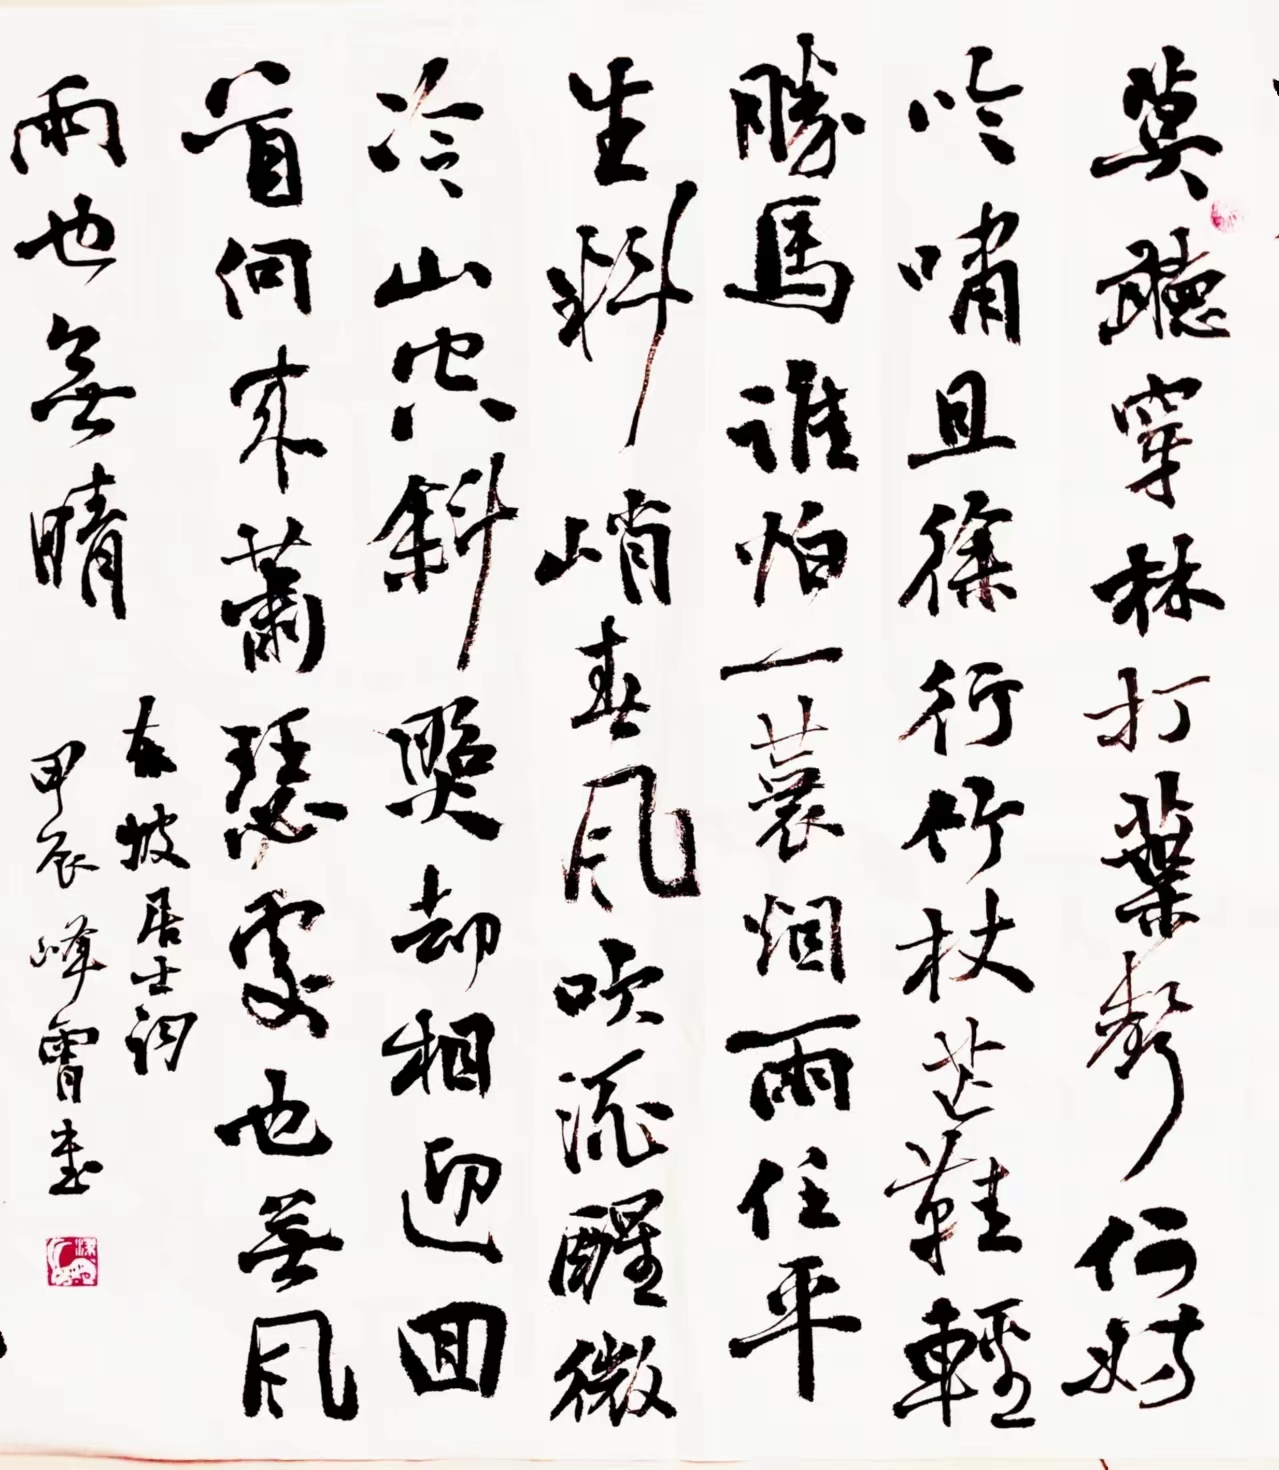 莫聽穿林打葉聲何妨
吟嘯且徐行竹杖芒鞋輕
勝馬誰怕一蓑烟雨任平
生料峭春風吹酒醒微
冷山头斜照却相迎回
首向来蕭瑟處也無風
雨也無晴
东坡居士詞
甲辰峰霄書